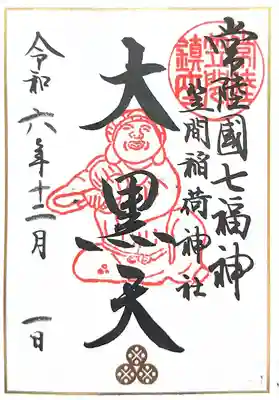 常陸國七福神
笠間稲荷神社
大黒天
令和六年十二月一日